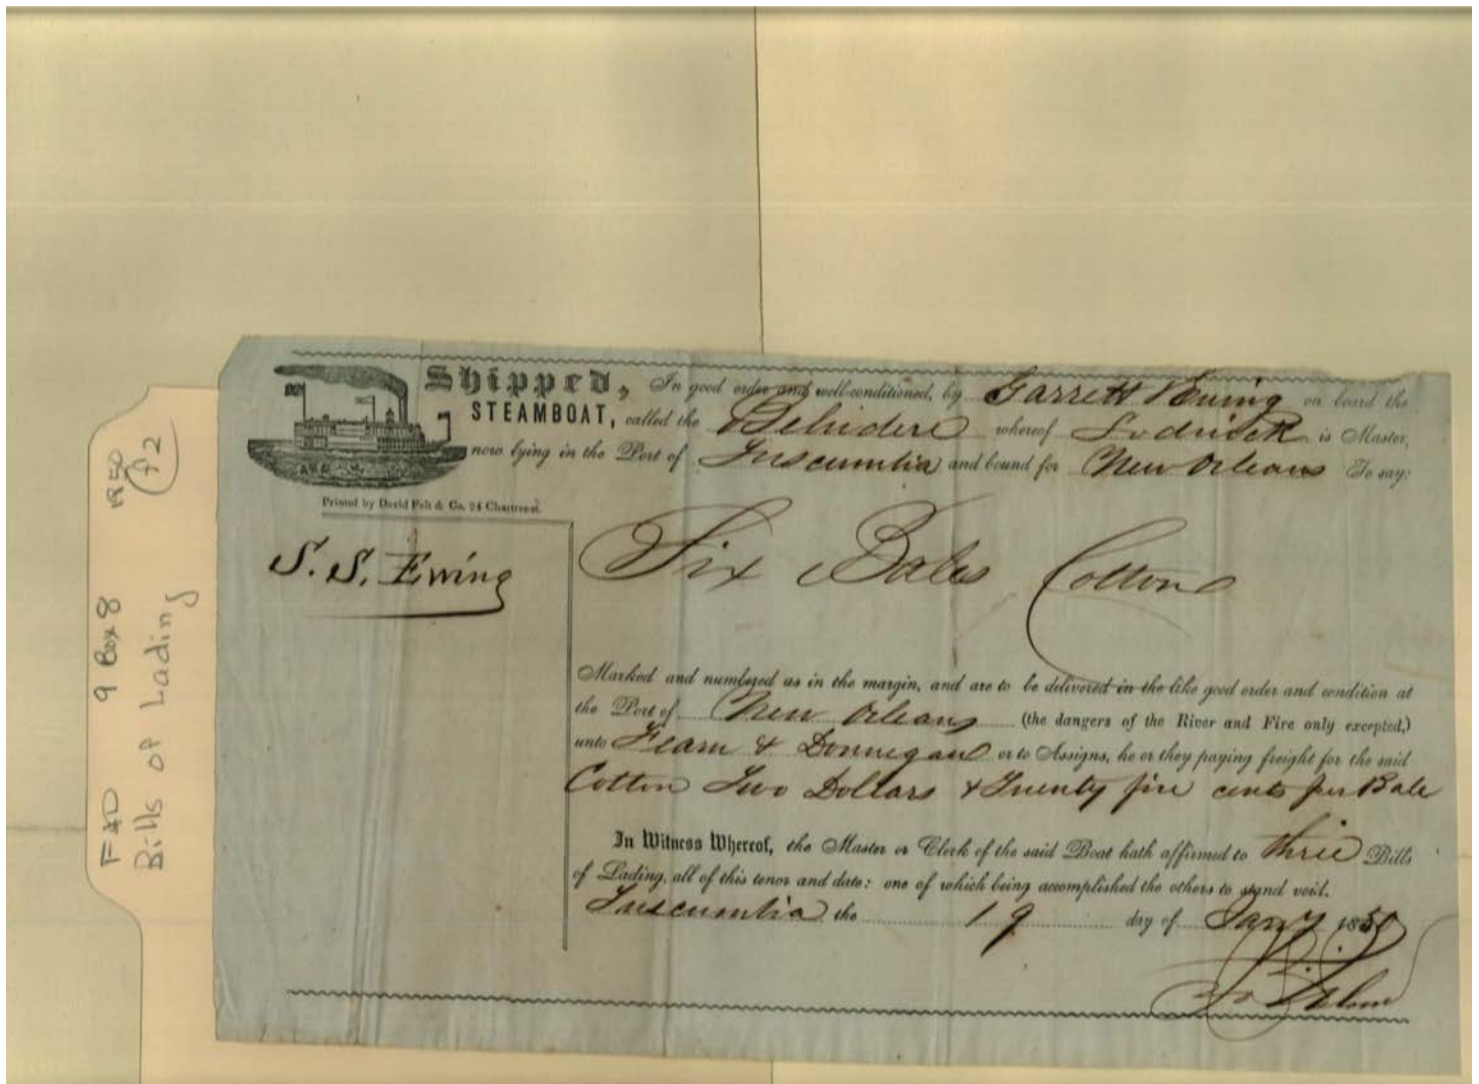 Shipped, In good order and well-conditioned, by Garrett & Ewing on board the
STEAMBOAT, called the Belvidere whereof Lodwick is Master,
now lying in the Port of Tuscumbia and bound for New Orleans To say:
Printed by David Felt & Co. 24 Chartres st.
S. S. Ewing
Six Bales Cotton
Marked and numbered as in the margin, and are to be delivered in the like good order and condition at
the Port of New Orleans (the dangers of the River and Fire only excepted,)
unto Fearn & Donnegan or to Assigns, he or they paying freight for the said
Cotton Two Dollars & Twenty five cents per Bale
In Witness Whereof, the Master or Clerk of the said Boat hath affirmed to three Bills
of Lading, all of this tenor and date: one of which being accomplished the others to stand void.
Tuscumbia the 19 day of Jany 1850
F&D 9 Box 8 1850 f2
Bills of Lading